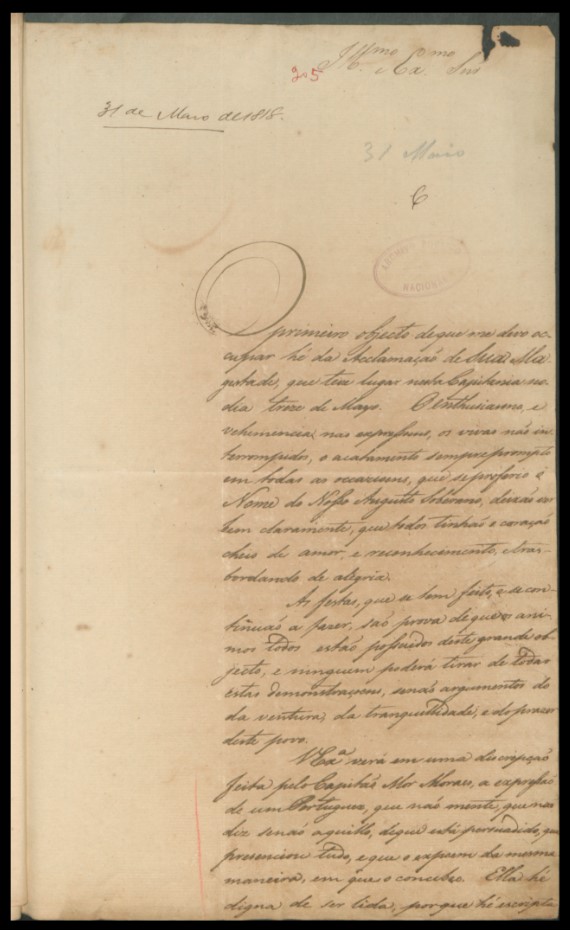 Illmo Exmo Snr
31 de Maio de 1818.
31 Maio
6
NACIONAL
O primeiro objecto de que me devo oc-
cupar hé da Acclamaçaõ de Sua Ma
gestade, que teve lugar nesta Capitania no
dia treze de Mayo. O enthusiasmo, e
vehemencia nas expressoens, os vivas naõ in
terrompidos, o acatamento sempre prompto
em todas as occazioens, que se proferio o
Nome do Nosso Augusto Soberano, deixaõ
bem claramente, que todos tinhaõ o coraçaõ
cheio de amor, e reconhecimento, e tras-
bordando de alegria.
As festas, que se tem feito, e se con-
tinuaõ a fazer, saõ prova de que os ani-
mos todos estaõ possuidos deste grande ob-
jecto, e ninguem poderá tirar de todas
estas demonstraçoens, senaõ argumentos do
da ventura, da tranquillidade, e do prazer
deste povo.
VExa verá em uma descripçaõ
feita pelo Capitaõ Mor Moraes, a expressaõ
de um Portuguez, que naõ mente, que naõ
diz senaõ aquillo, de que está persuadido, que
presenciou tudo, e que o expoem da mesma
maneira, em que o concebe. Ella hé
digna de ser lida, porque hé escripta